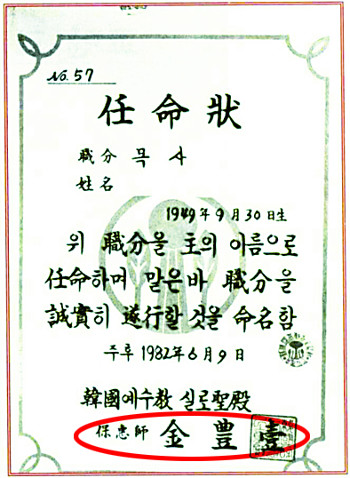 No. 57
任命狀
職分 목사
姓名
1949年 9月 30日生
위 職分을 主의 이름으로
任命하며 맡은바 職分을
誠實히 遂行할 것을 命名함
주후 1982年 6月 9日
韓國예수敎 실로聖殿
保惠師 金豊壹